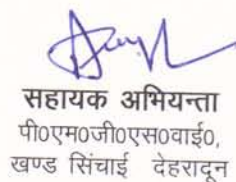 सहायक अभियन्ता
पी०एम०जी०एस०वाई०,
खण्ड सिंचाई देहरादून